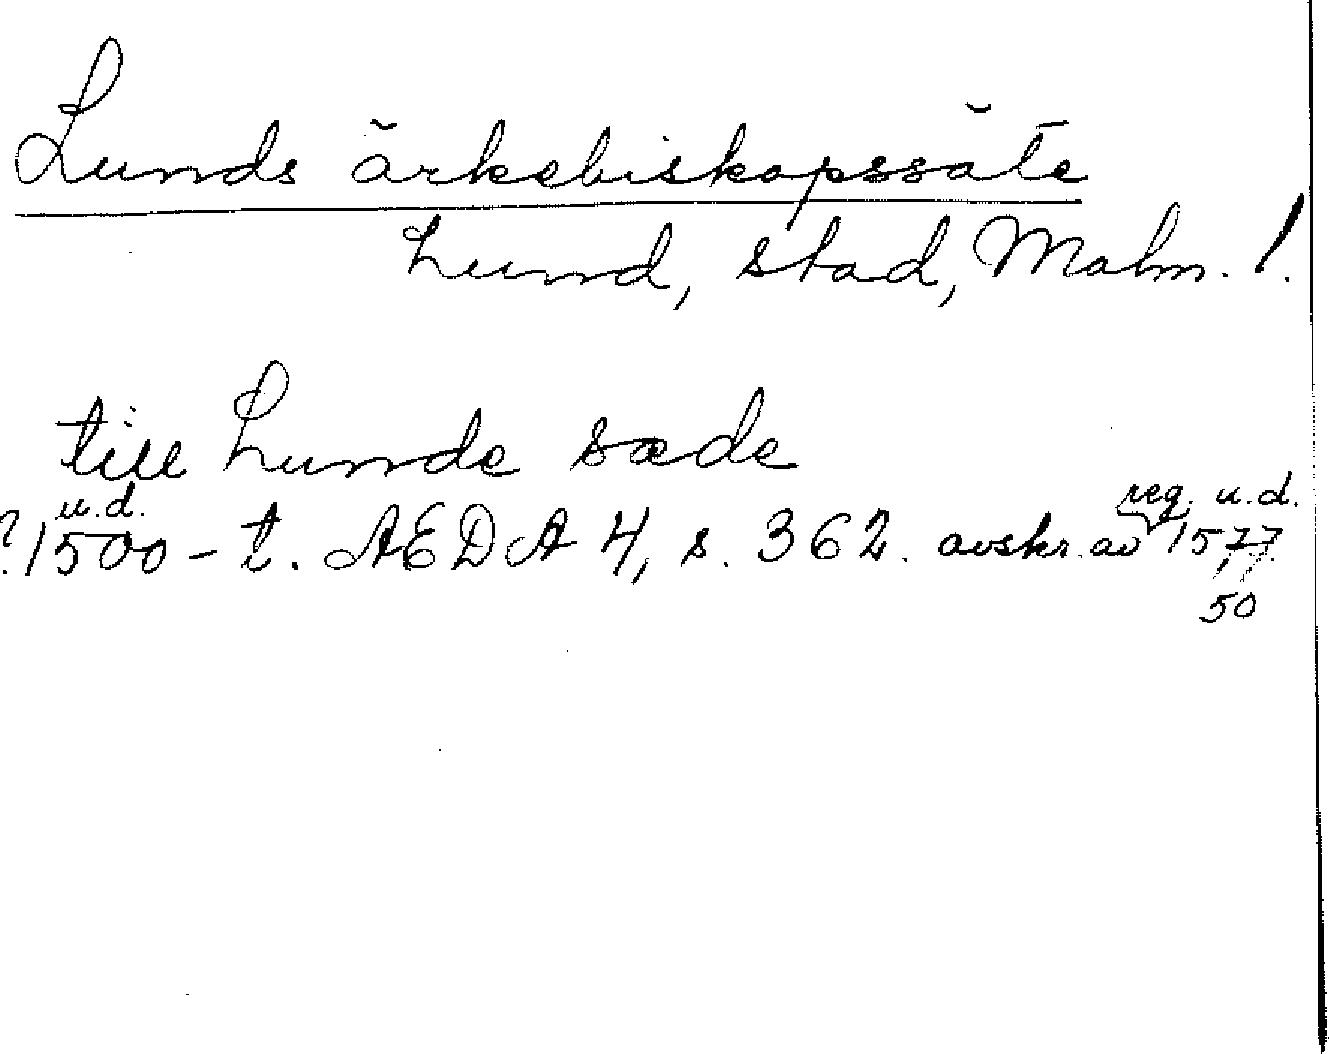 Lunds ärkebiskopssäte
Lund, stad, Malm. l.
till Lunde sæde
u.d. reg. u.d.
?1500-t. AEDA 4, s. 362. avskr. av 1577
50